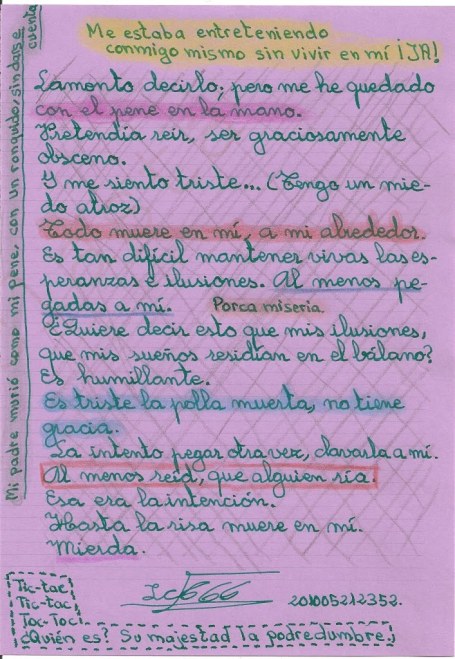 Me estaba entreteniendo
conmigo mismo sin vivir en mí ¡JA!
Lamento decirlo; pero me he quedado
con el pene en la mano.
Pretendía reír, ser graciosamente
obsceno.
Y me siento triste... (Tengo un mie-
do atroz)
Todo muere en mí, a mi alrededor.
Es tan difícil mantener vivas las es-
peranzas e ilusiones. Al menos pe-
gadas a mí. Porca miseria.
¿Quiere decir esto que mis ilusiones,
que mis sueños residían en el bálano?
Es humillante.
Es triste la polla muerta, no tiene
gracia.
La intento pegar otra vez, clavarla a mí.
Al menos reíd, que alguien ría.
Esa era la intención.
Hasta la risa muere en mí.
Mierda.
Mi padre murió como mi pene, con un ronquido, sin darse
cuenta
Tic-tac
Tic-tac
Toc-Toc
¿Quién es? Su majestad la podredumbre.
201005212352.